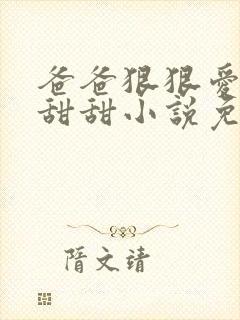 爸爸狠狠愛
甜甜小說免
隋文靖